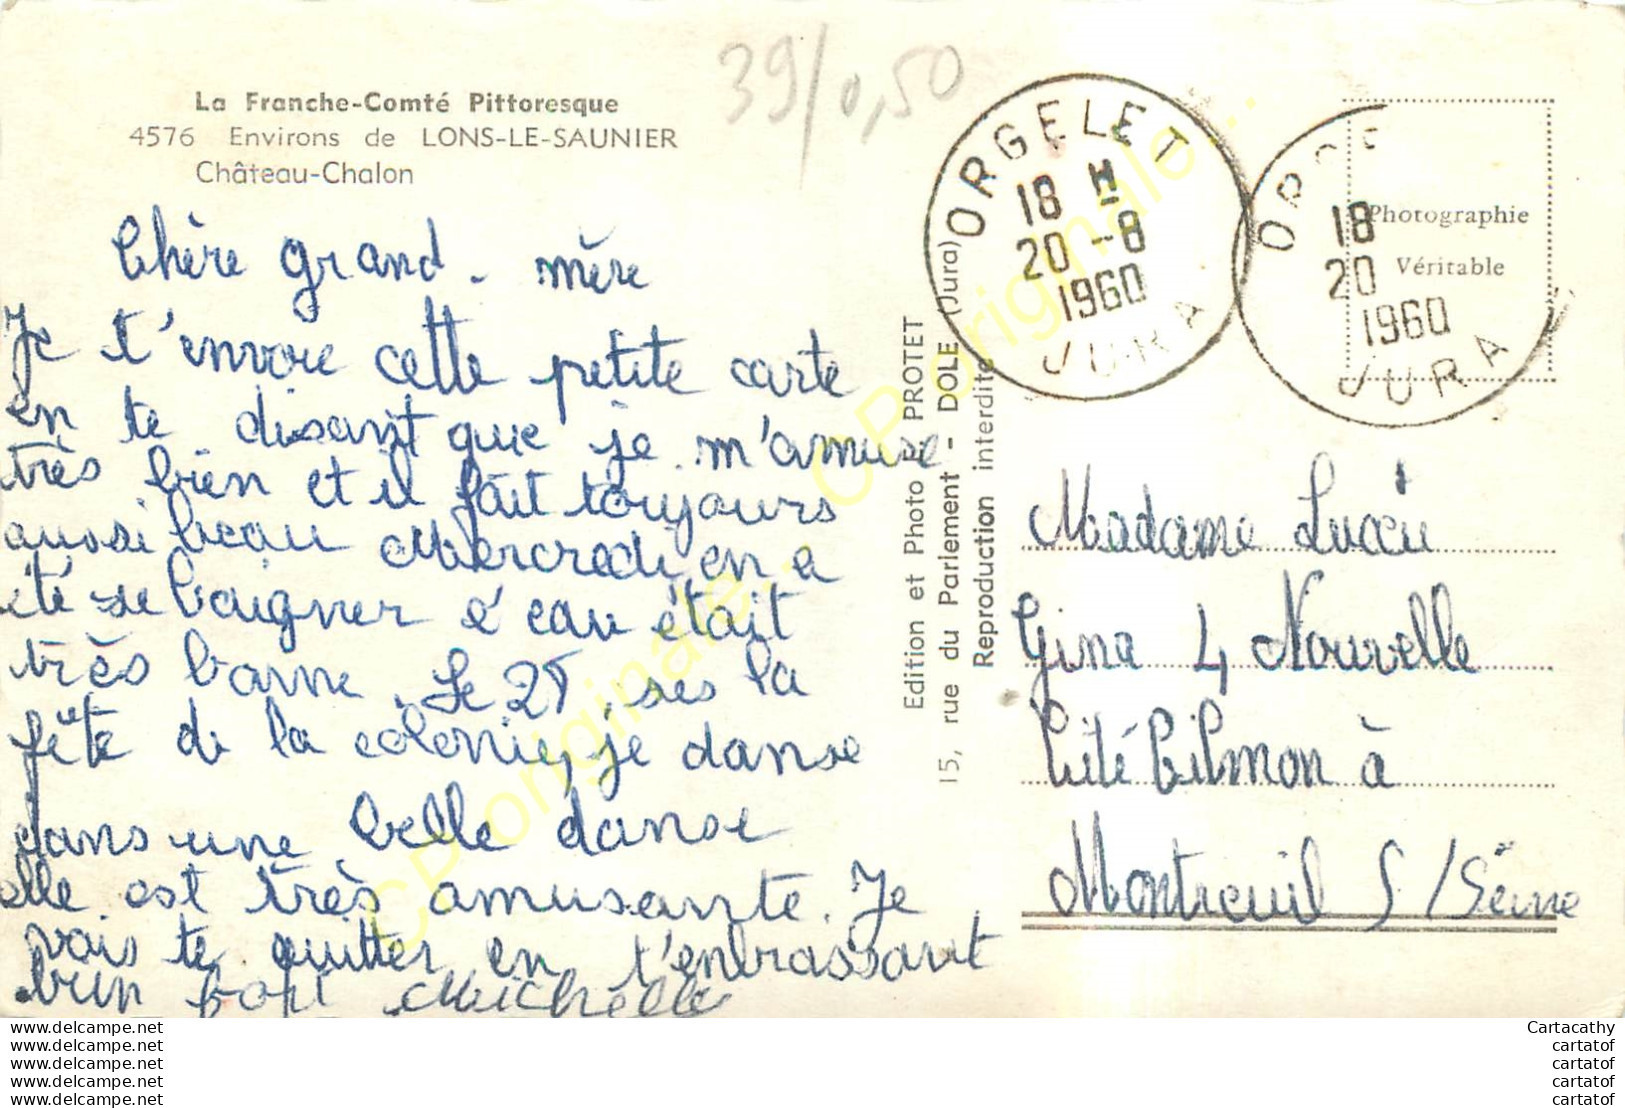 39/0,50
La Franche-Comté Pittoresque
4576 Environs de LONS-LE-SAUNIER
Château-Chalon
Chère grand-mère
Je t'envoie cette petite carte
en te disant que je m'amuse
très bien et il fait toujours
aussi beau Mercredi en a
été se baigner l'eau était
très bonne. Le 28, ses la
fête de la colonie, je danse
dans une belle danse
elle est très amusante. Je
vais te quitter en t'embrassant
bien fort Michelle
Edition et Photo PROTET
15, rue du Parlement - DOLE (Jura)
Reproduction interdite
ORGELET
18 H
20 -8
1960
JURA
ORGE
18
20
1960
JURA
Photographie
Véritable
Madame
Gina 4 Nouvelle
Cité à
Montreuil S/Seine
CPoriginale... CPoriginale...
www.delcampe.net
www.delcampe.net
www.delcampe.net
www.delcampe.net
www.delcampe.net
Cartacathy
cartatof
cartatof
cartatof
cartatof